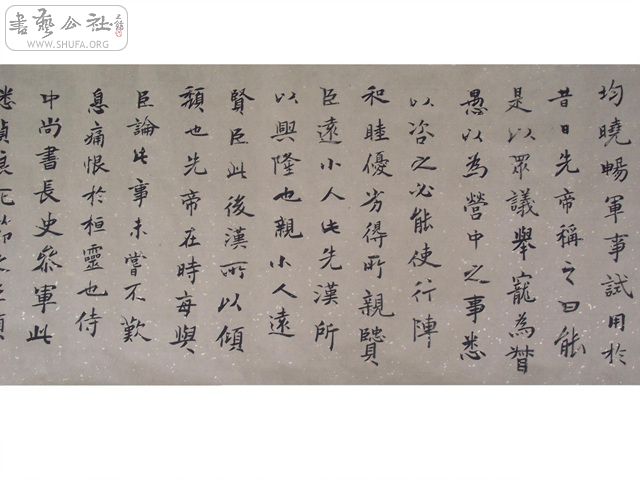 書藝公社
WWW.SHUFA.ORG
均曉暢軍事試用於
昔日先帝稱之曰能
是以眾議舉寵為督
愚以為營中之事悉
以咨之必能使行陣
和睦優劣得所親賢
臣遠小人此先漢所
以興隆也親小人遠
賢臣此後漢所以傾
頹也先帝在時每與
臣論此事未嘗不歎
息痛恨於桓靈也侍
中尚書長史參軍此
悉貞良死節之臣願